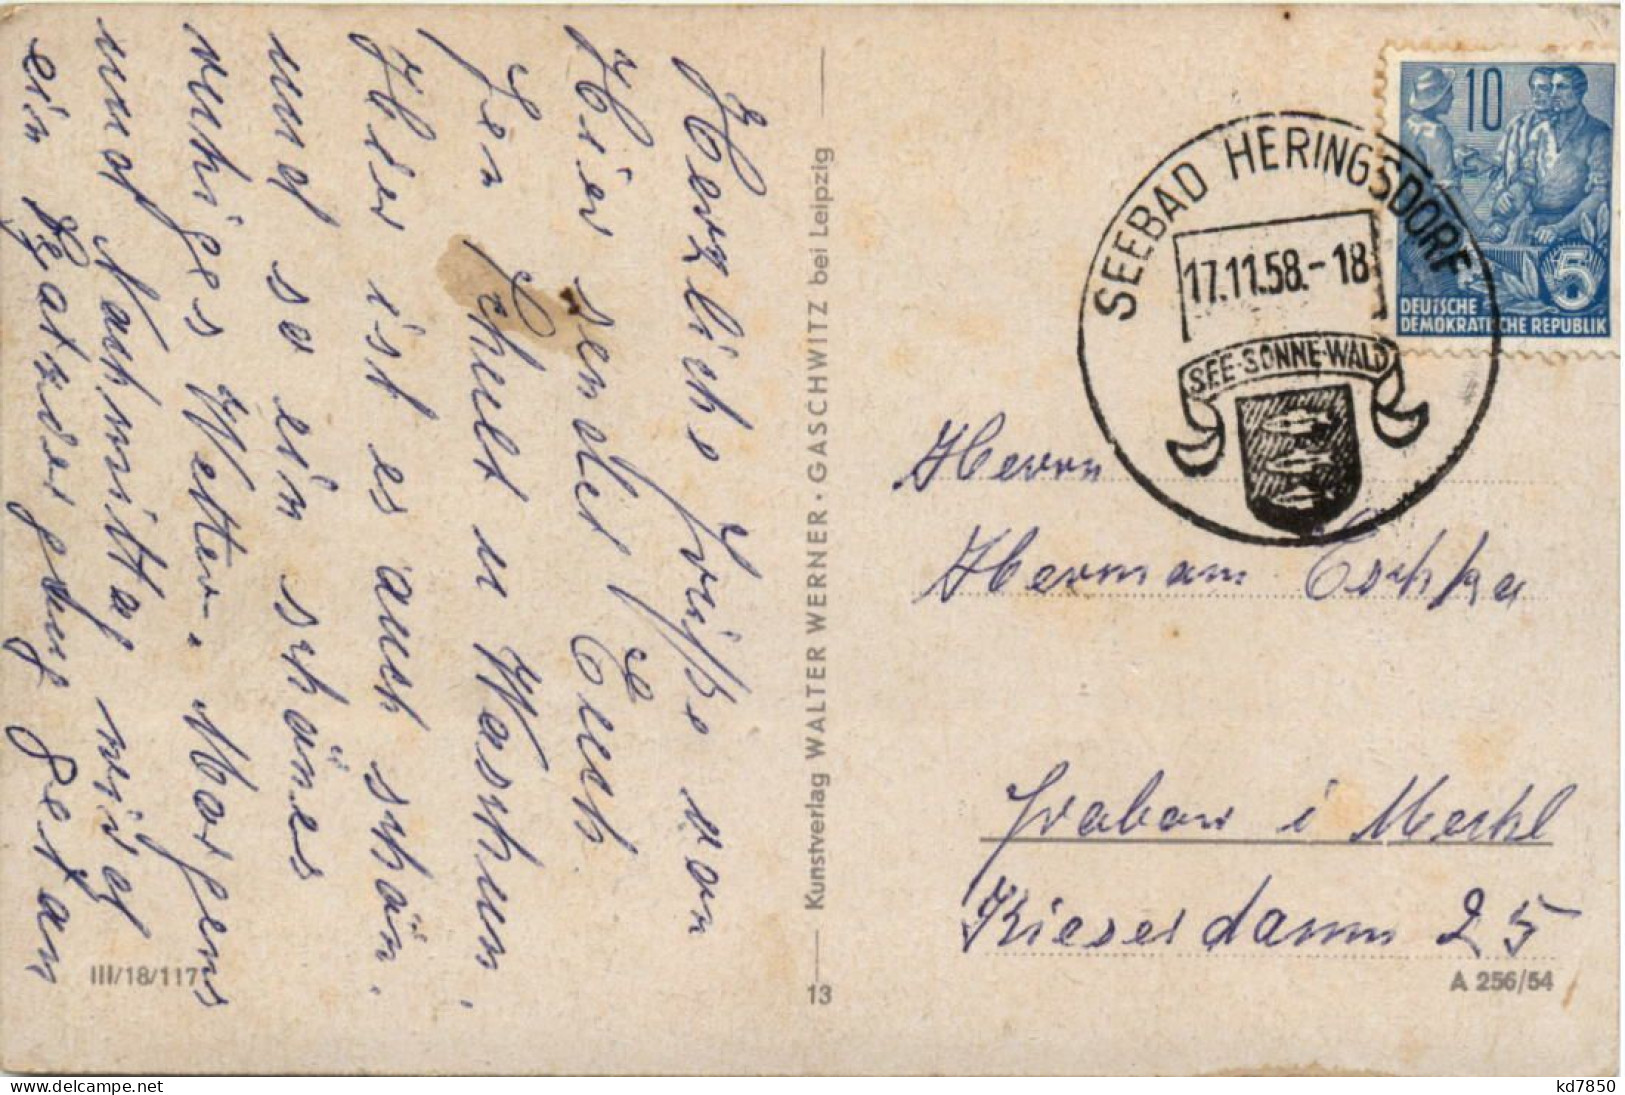 Herzliche Grüße von
Hier sendet Euch
Jen Schult u Waschun.
Hier ist es auch schön.
und so ein schönes
ruhiges Wetter. Morgens
und Nachmittag wird
ein Spatziergang getan
Kunstverlag WALTER WERNER · GASCHWITZ bei Leipzig
III/18/117
13
10
5
DEUTSCHE
DEMOKRATISCHE REPUBLIK
SEEBAD HERINGSDORF
17.11.58.-18
SEE·SONNE·WALD
Herrn
Hermann
Grabow i Meckl
Kieserdamm 25
A 256/54
kd7850